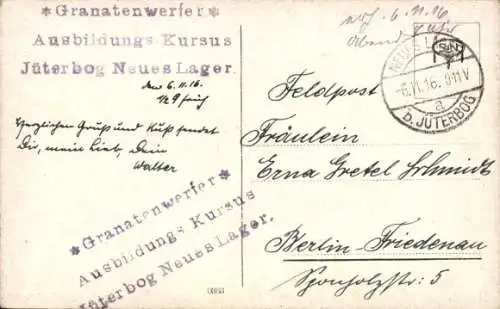 *Granatenwerfer*
Ausbildungs-Kursus
Jüterbog Neues Lager.
den 6.11.16.
Herzlichen Gruß und Kuß sendet
Dir, mein Lieb, Dein
Walter
*Granatenwerfer*
Ausbildungs-Kursus
Jüterbog Neues Lager.
6.11.16.
NEUES LAGER
-6.11.16. 9-11V
a
b. JÜTERBOG
Feldpost
Fräulein
Erna Gretel Schmidt
Berlin-Friedenau
Sponholzstr: 5